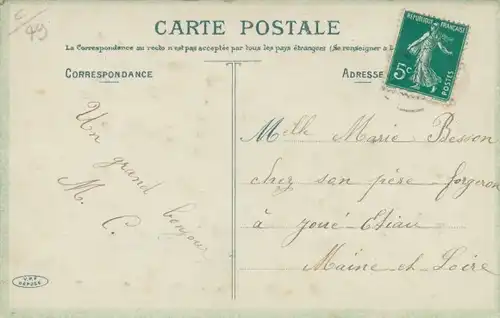 6/49
CARTE POSTALE
La Correspondance au recto n'est pas acceptée par tous les pays étrangers (Se renseigner à la
CORRESPONDANCE
ADRESSE
RÉPUBLIQUE FRANÇAISE
5c
POSTES
Un grand bonjour
M. C.
Melle Marie Besson
chez son père forgeron
à Joué-Etiau
Maine et Loire
DÉPOSÉ